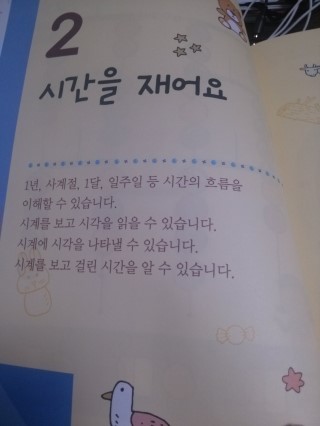 2
시간을 재어요
1년, 사계절, 1달, 일주일 등 시간의 흐름을
이해할 수 있습니다.
시계를 보고 시각을 읽을 수 있습니다.
시계에 시각을 나타낼 수 있습니다.
시계를 보고 걸린 시간을 알 수 있습니다.